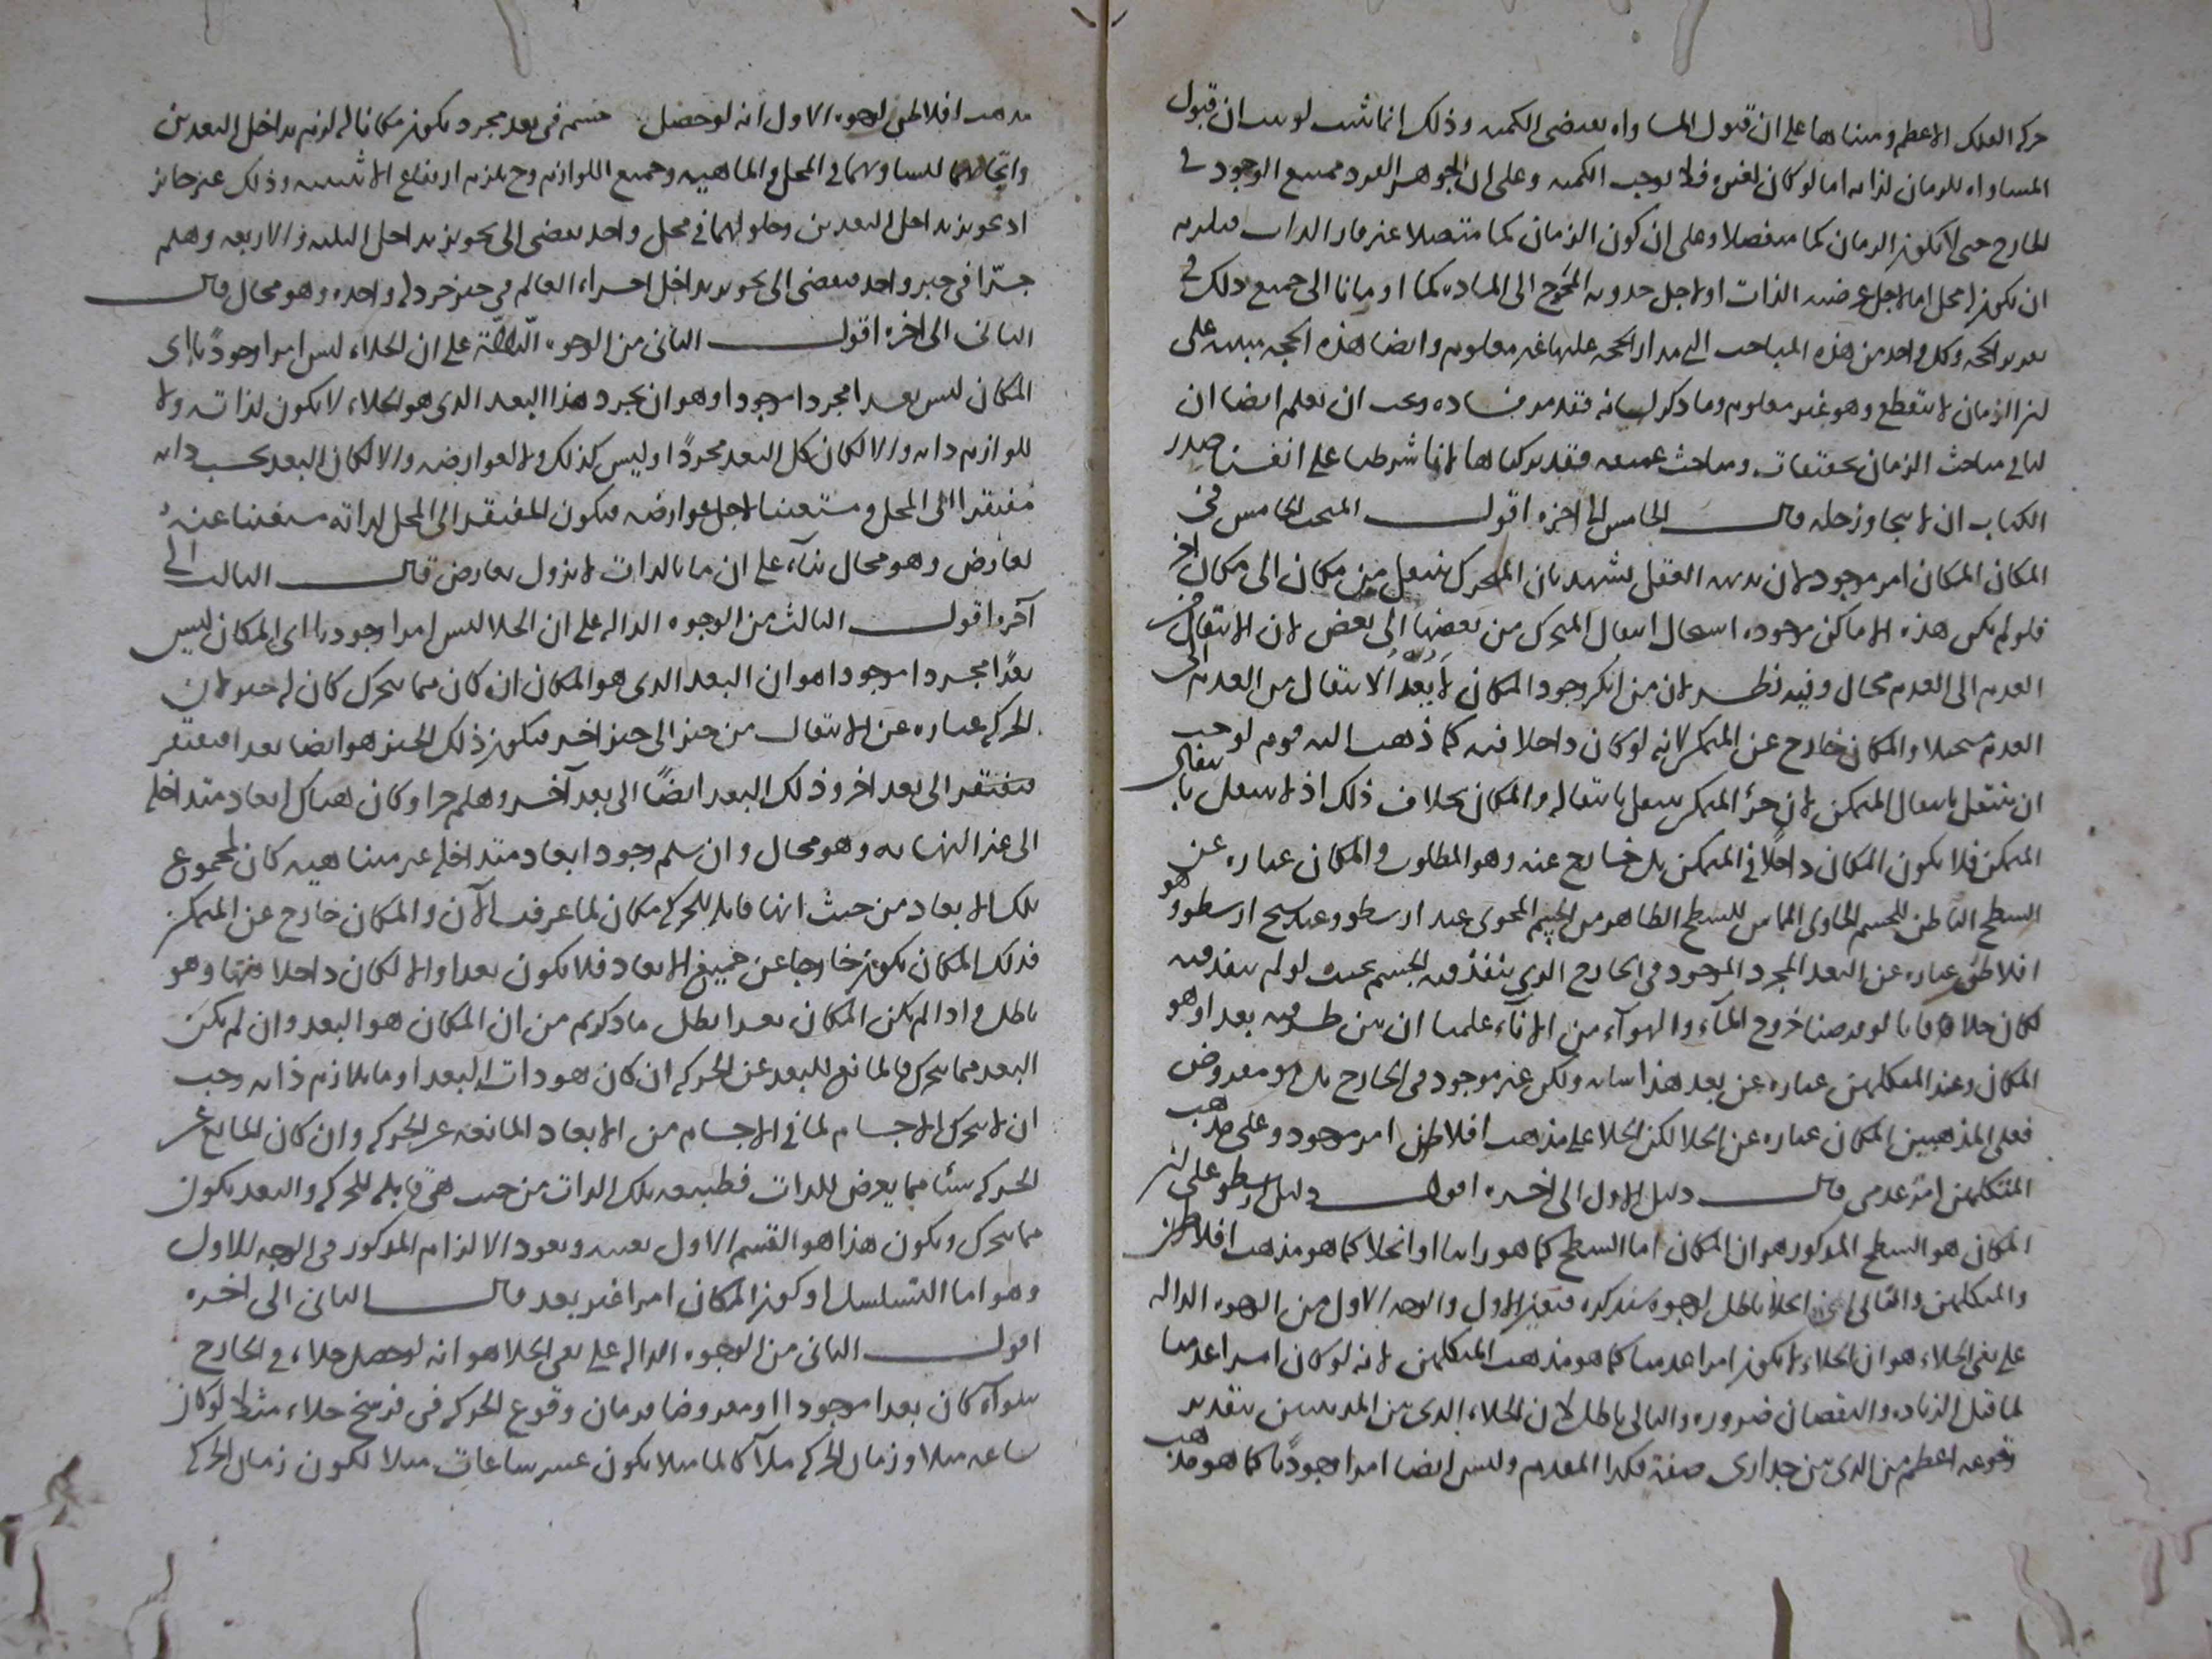 حركه الفلك الاعظم ومبناها على ان قبول المساواه يقتضى الكميه وذلك انما يثبت لو ثبت ان قبول
المساواه للزمان لذاته اما لو كان لغيره فلا يوجب الكميه وعلى ان الجوهر الفرد ممتنع الوجود فى
الخارج حتى لا يكون الزمان كما منفصلا وعلى ان كون الزمان كما متصلا غير قار الذات فيلزم
ان يكون له محل اما لاجل عرضيه الذات او لاجل حدوثه المحوج الى الماده كما اومانا الى جميع ذلك فى
تقرير الحجه وكل واحد من هذه المباحث التى مدار الحجه عليها غير معلوم وايضا هذه الحجه مبنيه على
ان الزمان لا ينقطع وهو غير معلوم وما ذكر لبيانه فقد مر فساده ويجب ان تعلم ايضا ان
لنا فى مباحث الزمان تحقيقات ومباحث عميقه فقد تركناها لانا شرطنا على انفسنا صدر
الكتاب ان لا نتجاوز حله قال الخامس الى اخره اقول المبحث الخامس فى
المكان المكان امر موجود لان بديهه العقل تشهد بان المتحرك ينتقل من مكان الى مكان اخر
فلو لم يكن هذه الاماكن موجوده استحال انتقال المتحرك من بعضها الى بعض لان الانتقال من
العدم الى العدم محال وفيه نظر لان من انكر وجود المكان لا يعد الانتقال من العدم الى
العدم مستحيلا والمكان خارج عن المتمكن لانه لو كان داخلا فيه كما ذهب اليه قوم لوجب
ان ينتقل بانتقال المتمكن لان جزء المتمكن ينتقل بانتقاله والمكان بخلاف ذلك اذ لا ينتقل بانتقال
المتمكن فلا يكون المكان داخلا فى المتمكن بل خارج عنه وهو المطلوب والمكان عباره عن
السطح الباطن للجسم الحاوى المماس للسطح الظاهر من الجسم المحوى عند ارسطو وهو
افلاطن عباره عن البعد المجرد الموجود فى الخارج الذى ينفذ فيه الجسم بحيث لو لم ينفذ فيه
لكان خلاء فانا لو فرضنا خروج الماء والهواء من الاناء علمنا ان بين طرفيه بعدا وهو
المكان وعند المتكلمين عباره عن بعد هذا شانه ولكن غير موجود فى الخارج بل هو مفروض
فعلى المذهبين المكان عباره عن الخلا لكن الخلا على مذهب افلاطن امر موجود وعلى مذهب
المتكلمين امر عدمى قال دليل الاول الى اخره اقول دليل ارسطو على ان
المكان هو السطح المذكور هو ان المكان اما السطح كما هو راينا او الخلا كما هو مذهب افلاطن
والمتكلمين والثانى اعنى الخلا باطل لوجوه سنذكره فتعين الاول والوجه الاول من الوجوه الداله
على نفى الخلاء هو ان الخلاء لا يكون امرا عدميا كما هو مذهب المتكلمين لانه لو كان امرا عدميا
لما قبل الزياده والنقصان ضروره والتالى باطل لان الخلاء الذى بين المدينتين بتقدير
وقوعه اعظم من الذى بين جدارى صفة فكذا المقدم وليس ايضا امرا وجوديا كما هو مذهب
مذهب افلاطن لوجوه الاول انه لو حصل جسم فى بعد مجرد يكون مكانا له لزم تداخل البعدين
واتحادهما لتساويهما فى المحل والماهيه وجميع اللوازم وح يلزم ارتفاع الاثنينيه وذلك غير جائز
اذ تجويز تداخل البعدين وحلولهما فى محل واحد يفضى الى تجويز تداخل الثلثه والاربعه وهلم
جرّا فى حيز واحد فيفضى الى تجويز تداخل اجزاء العالم فى حيز خردله واحده وهو محال قال
الثانى الى اخره اقول الثانى من الوجوه الدالة على ان الخلاء ليس امرا وجوديا اى
المكان ليس بعدا مجردا موجودا وهو ان تجرد هذا البعد الذى هو الخلاء لا يكون لذاته ولا
للوازم ذاته والا لكان كل البعد مجردًا وليس كذلك ولا لعوارضه والا لكان البعد بحسب ذاته
مفتقرا الى المحل ومستغنيا لاجل عوارضه فيكون المفتقر الى المحل لذاته مستغنيا عنه
لعارض وهو محال بناء على ان ما بالذات لا يزول بعارض قال الثالث الى
آخره اقول الثالث من الوجوه الداله على ان الخلا ليس امرا وجوديا اى المكان ليس
بعدًا مجردا موجودا هو ان البعد الذى هو المكان ان كان مما يتحرك كان له حيز لان
الحركه عباره عن الانتقال من حيز الى حيز اخر فيكون ذلك الحيز هو ايضا بعدا فيفتقر
فيفتقر الى بعد اخر وذلك البعد ايضًا الى بعد آخر وهلم جرا وكان هناك ابعاد متداخله
الى غير النهايه وهو محال وان سلم وجود ابعاد متداخله غير متناهيه كان لمجموع
تلك الابعاد من حيث انها قابله للحركه مكان لما عرفت الآن والمكان خارج عن المتمكن
فذلك المكان يكون خارجا عن جميع الابعاد فلا يكون بعدا والا لكان داخلا فيها وهو
باطل واذا لم يكن المكان بعدا بطل ما ذكرتم من ان المكان هو البعد وان لم يكن
البعد مما يتحرك فالمانع للبعد عن الحركه ان كان هو ذات البعد او ما يلازم ذاته وجب
ان لا يتحرك الاجسام لما فى الاجسام من الابعاد المانعه عن الحركه وان كان المانع عن
الحركه شيئا مما يعرض للذات فطبيعه تلك الذات من حيث هى قابله للحركه والبعد يكون
مما يتحرك ويكون هذا هو القسم الاول بعينه ويعود الالزام المذكور فى الوجه الاول
وهو اما التسلسل او كون المكان امرا غير بعد قال الثانى الى اخره
اقول الثانى من الوجوه الداله على نفى الخلا هو انه لو حصل خلاء فى الخارج
سواء كان بعدا موجودا او مفروضا فزمان وقوع الحركه فى فرسخ خلاء مثلا لو كان
ساعه مثلا وزمان الحركه ملآ كالماء مثلا يكون عشر ساعات مثلا لكون زمان الحركه